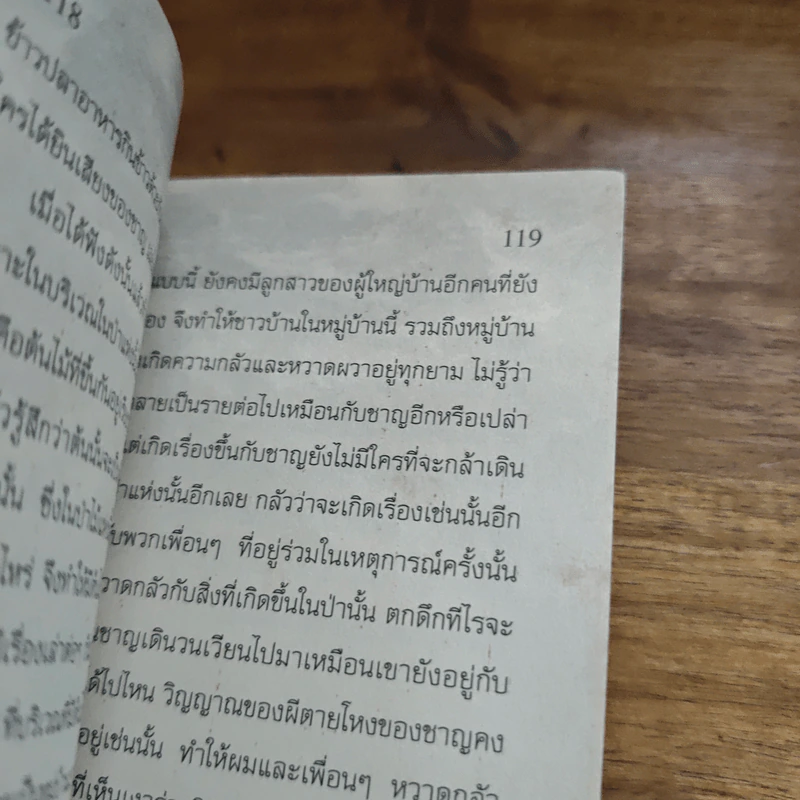 118
ข้าวปลาอาหารกินข้าว
ใครได้ยินเสียงของชาญ
เมื่อได้ฟังดังนั้น
ในบริเวณในป่า
คือต้นไม้ที่ขึ้นกันอยู่
รู้สึกว่าต้นนั้นจะ
นั้น ซึ่งในป่า
ไหร่ จึงทำให้
ที่บริเวณ
119
แบบนี้ ยังคงมีลูกสาวของผู้ใหญ่บ้านอีกคนที่ยัง
อง จึงทำให้ชาวบ้านในหมู่บ้านนี้ รวมถึงหมู่บ้าน
เกิดความกลัวและหวาดผวาอยู่ทุกยาม ไม่รู้ว่า
ลายเป็นรายต่อไปเหมือนกับชาญอีกหรือเปล่า
แต่เกิดเรื่องขึ้นกับชาญยังไม่มีใครที่จะกล้าเดิน
าแห่งนั้นอีกเลย กลัวว่าจะเกิดเรื่องเช่นนั้นอีก
ับพวกเพื่อนๆ ที่อยู่ร่วมในเหตุการณ์ครั้งนั้น
วาดกลัวกับสิ่งที่เกิดขึ้นในป่านั้น ตกดึกทีไรจะ
นชาญเดินวนเวียนไปมาเหมือนเขายังอยู่กับ
ด้ไปไหน วิญญาณของผีตายโหงของชาญคง
อยู่เช่นนั้น ทำให้ผมและเพื่อนๆ หวาดกลัว
ที่เห็น